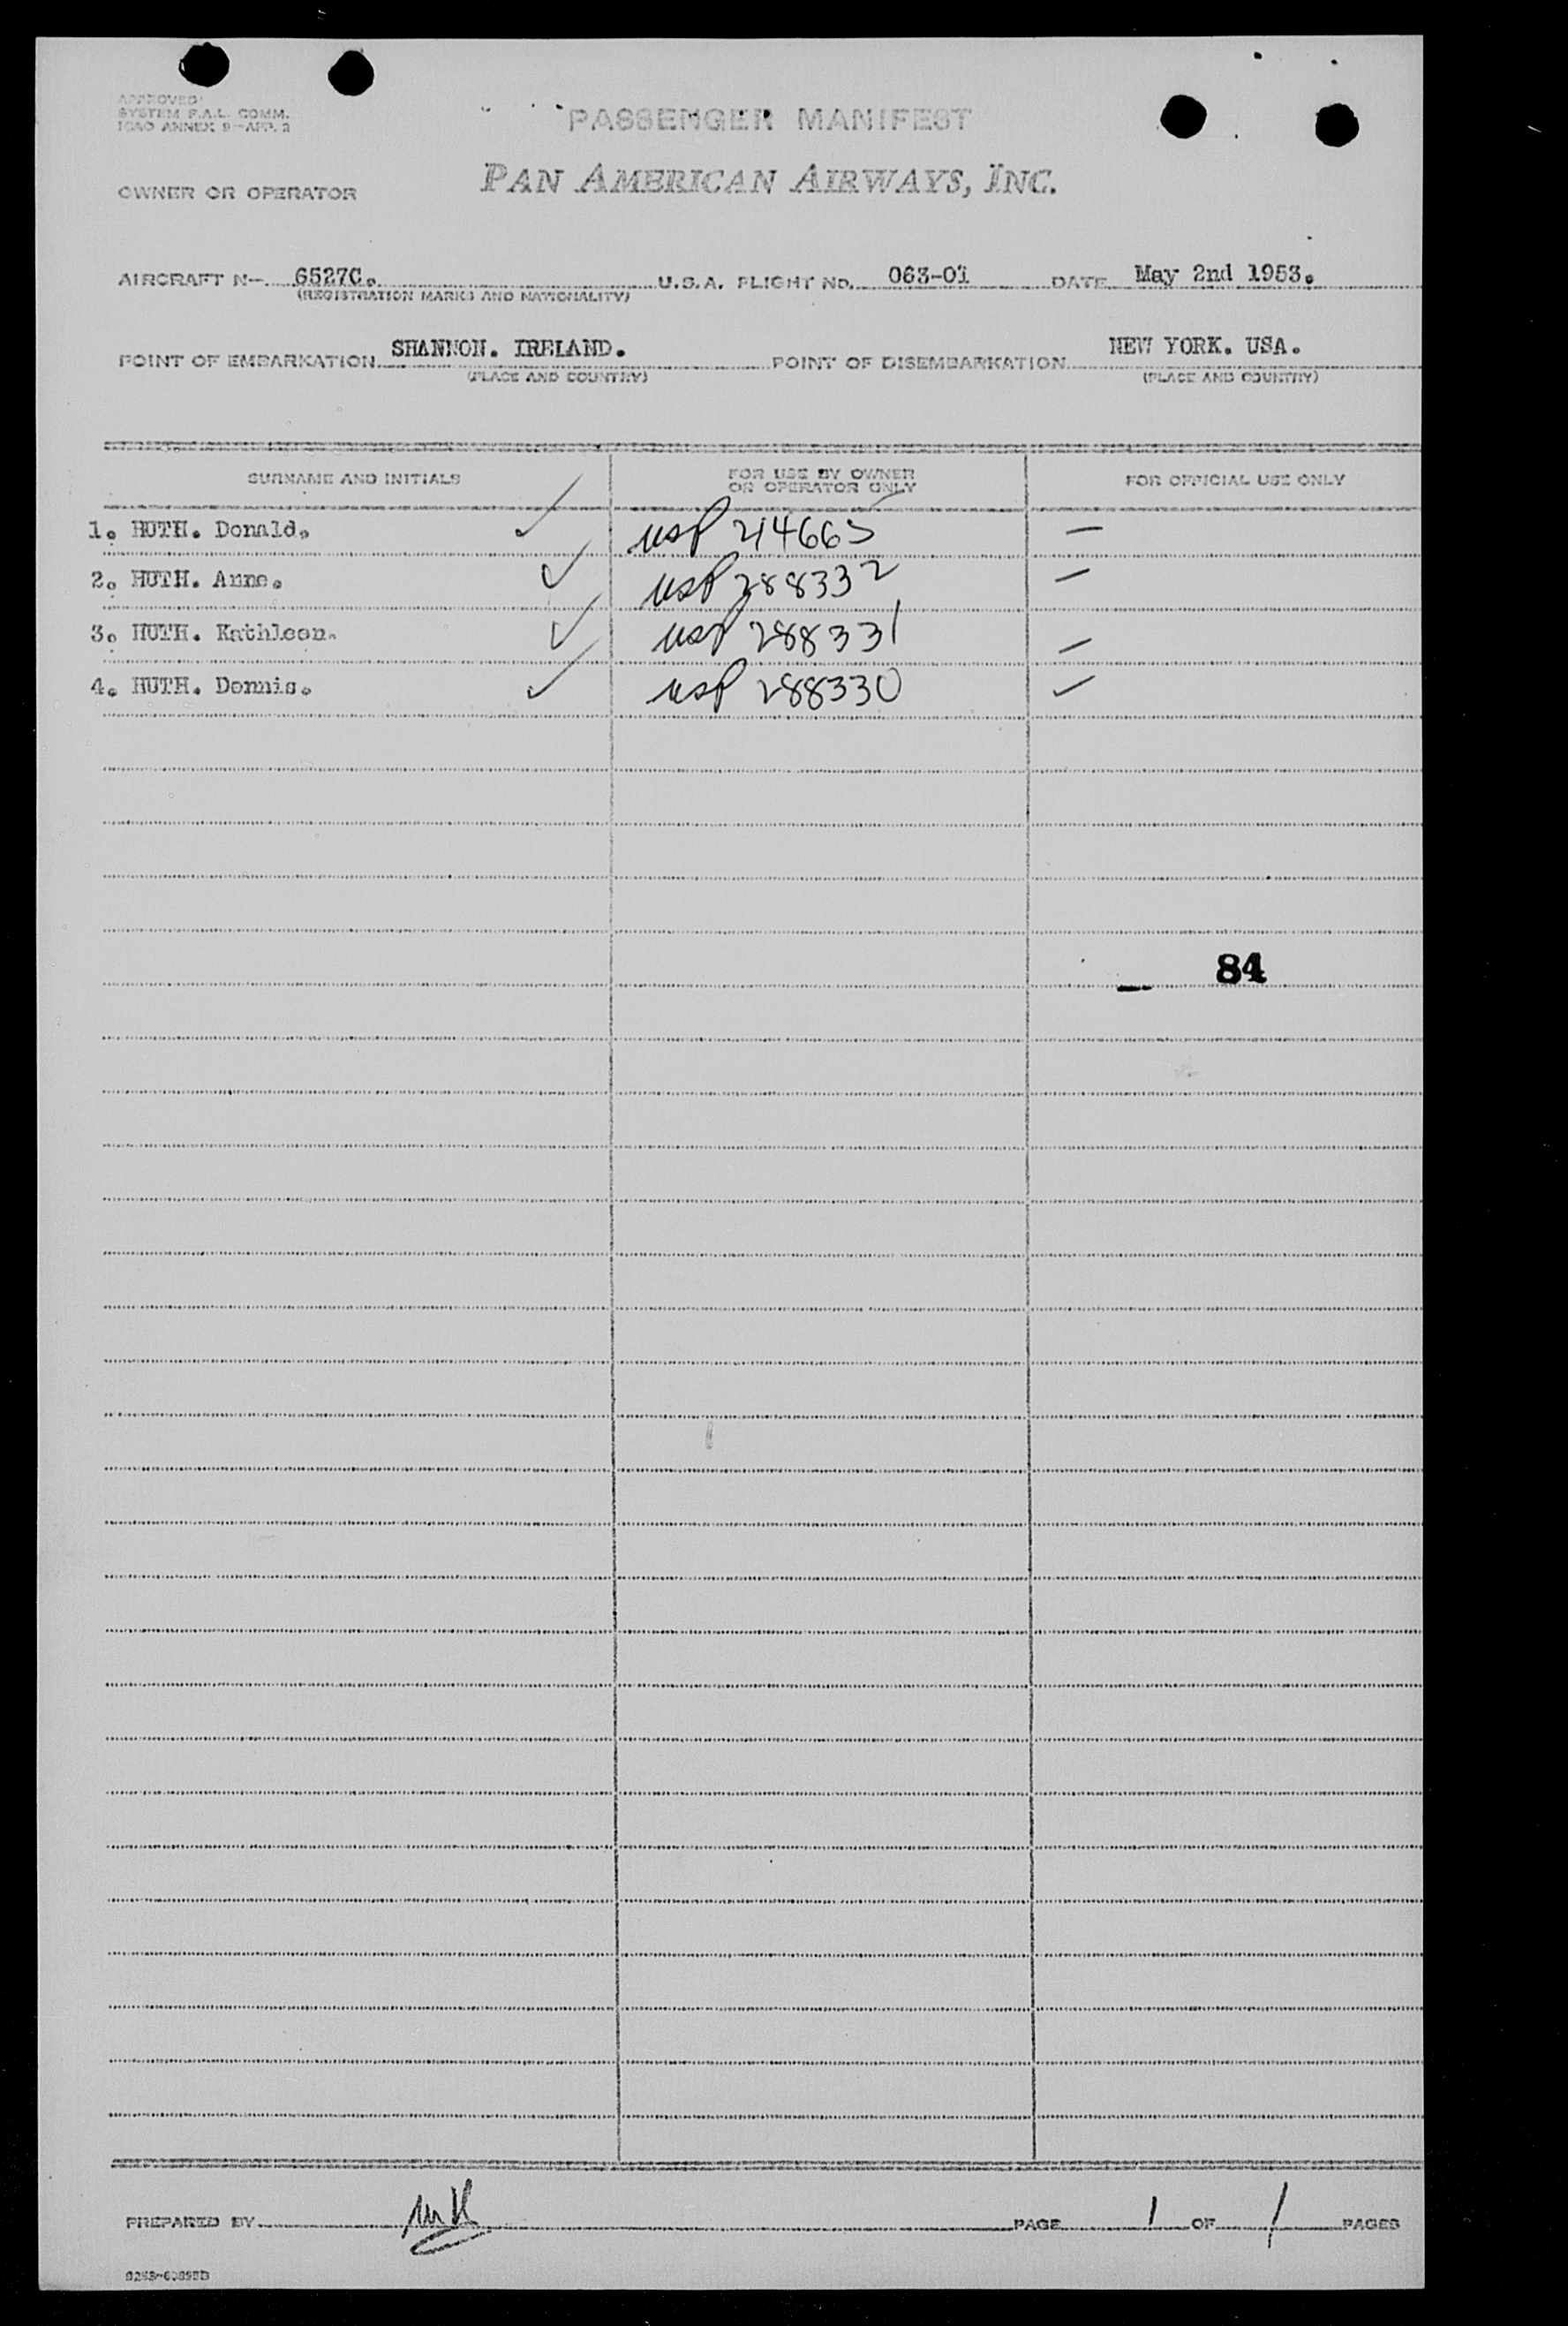 APPROVED
SYSTEM F.A.L. COMM.
ICAO ANNEX 9-APP. 2
PASSENGER MANIFEST
OWNER OR OPERATOR PAN AMERICAN AIRWAYS, INC.
AIRCRAFT N- 6527C. U.S.A. FLIGHT NO. 063-01 DATE May 2nd 1953.
(REGISTRATION MARKS AND NATIONALITY)
POINT OF EMBARKATION SHANNON. IRELAND. POINT OF DISEMBARKATION NEW YORK. USA.
(PLACE AND COUNTRY) (PLACE AND COUNTRY)
SURNAME AND INITIALS FOR USE BY OWNER OR OPERATOR ONLY FOR OFFICIAL USE ONLY
1. HUTH. Donald. ✓ USP 214665 —
2. HUTH. Anne. ✓ USP 288332 —
3. HUTH. Kathleen. ✓ USP 288331 —
4. HUTH. Dennis. ✓ USP 288330 ✓
— 84
PREPARED BY PAGE 1 OF 1 PAGES